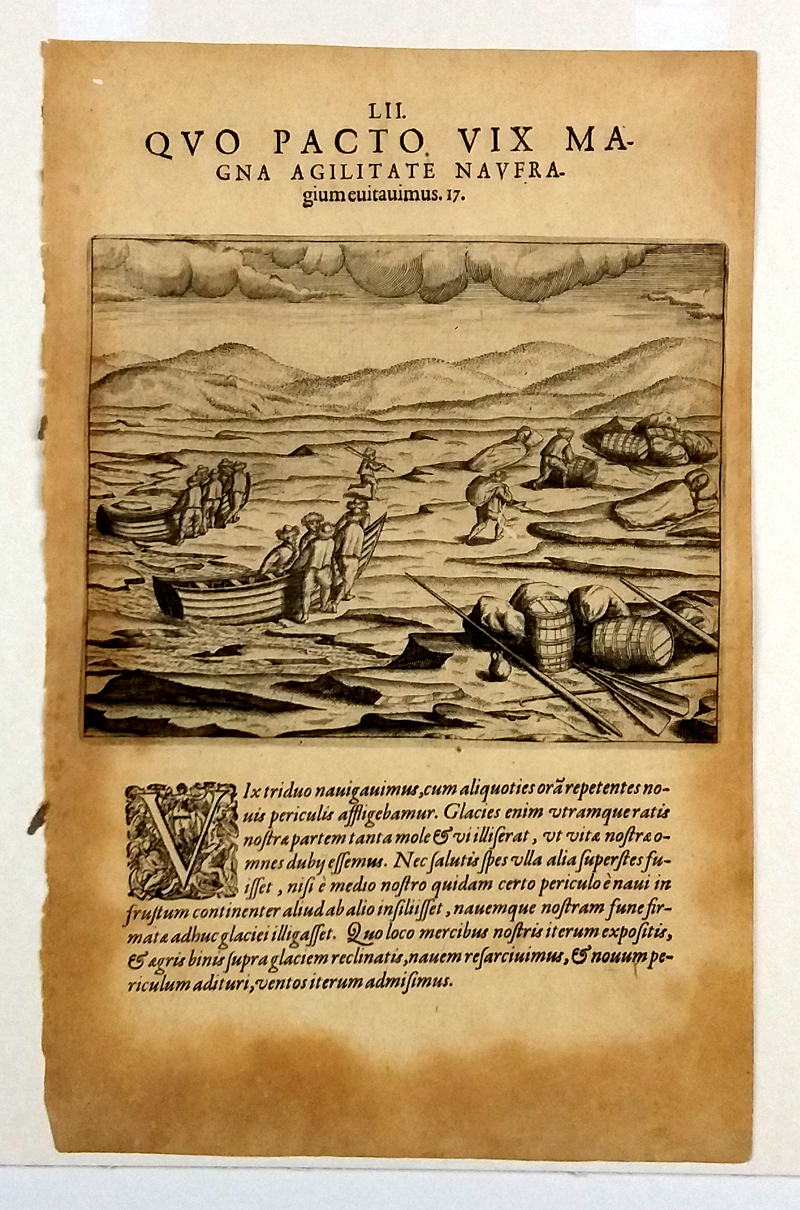 LII.
QVO PACTO VIX MA-
GNA AGILITATE NAVFRA-
gium euitauimus. 17.
VIx triduo nauigauimus, cum aliquoties orã repetentes no-
uis periculis affligebamur. Glacies enim vtramque ratis
nostræ partem tanta mole & vi illiserat, vt vitæ nostræ o-
mnes dubÿ essemus. Nec salutis spes vlla alia superstes fu-
isset, nisi è medio nostro quidam certo periculo è naui in
frustum continenter aliud ab alio insiliisset, nauemque nostram fune fir-
matæ adhuc glaciei illigasset. Quo loco mercibus nostris iterum expositis,
& ægris binis supra glaciem reclinatis, nauem resarciuimus, & nouum pe-
riculum adituri, ventos iterum admisimus.